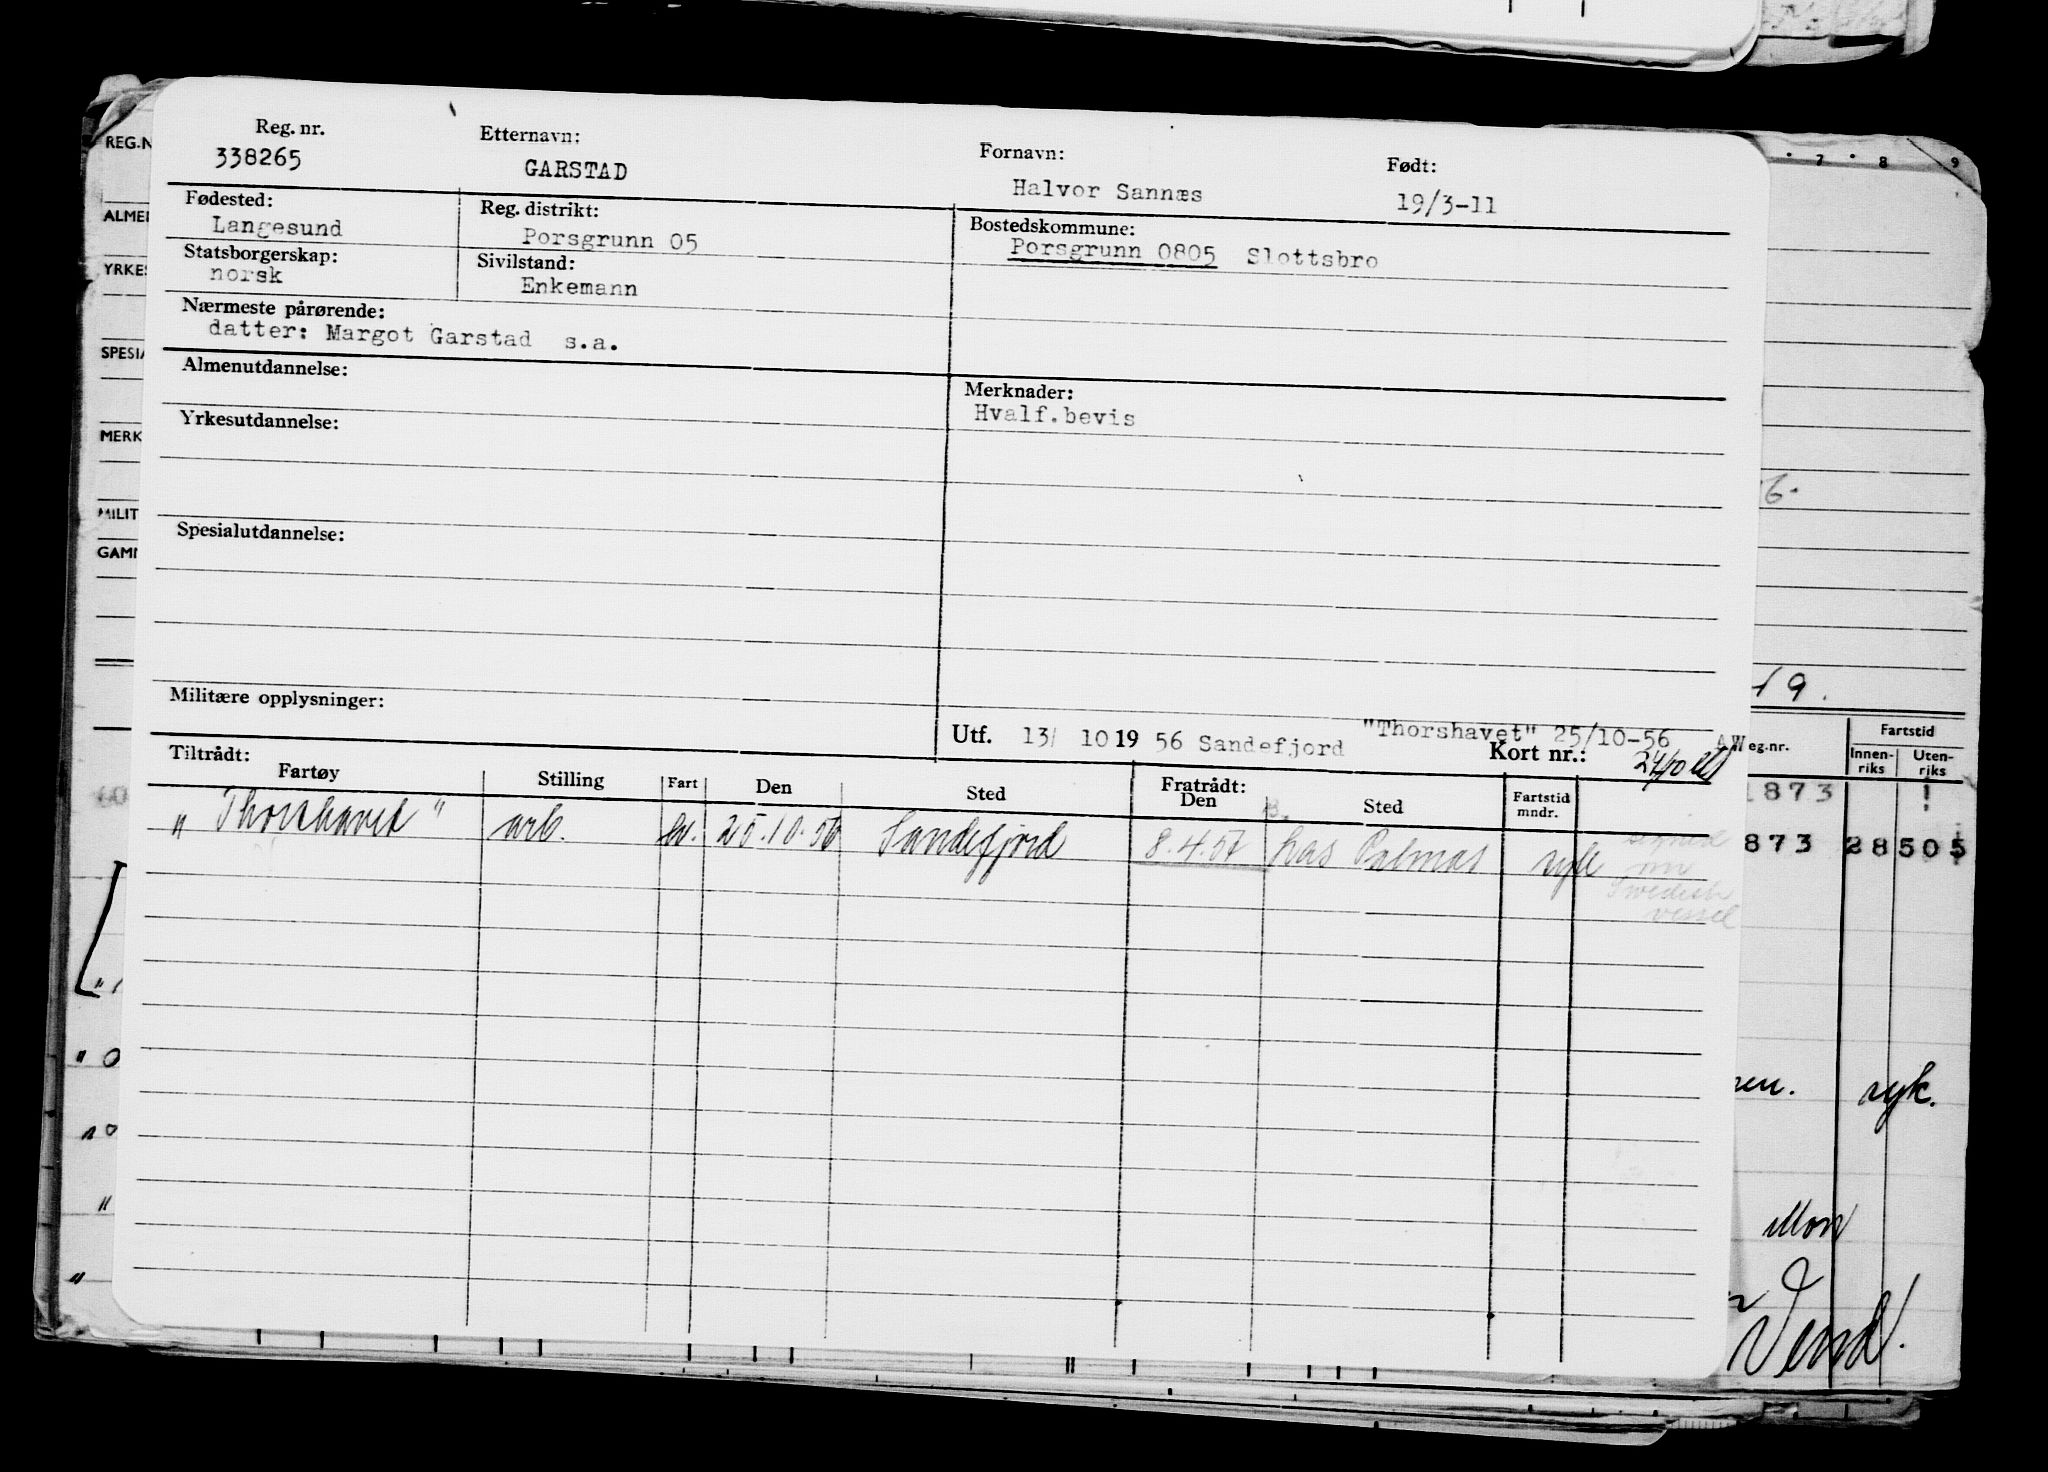 Reg. nr. Etternavn: Fornavn: Født:
338265 GARSTAD Halvor Sannæs 19/3-11
Fødested: Reg. distrikt: Bostedskommune:
Langesund Porsgrunn 05 Porsgrunn 0805 Slottsbro
Statsborgerskap: Sivilstand:
norsk Enkemann
Nærmeste pårørende:
datter: Margot Garstad s.a.
Almenutdannelse: Merknader:
Hvalf.bevis
Yrkesutdannelse:
Spesialutdannelse:
Militære opplysninger:
"Thorshavet" 25/10-56
Utf. 13/ 10 19 56 Sandefjord Kort nr.:
Tiltrådt: Fratrådt:
Fartøy Stilling Fart Den Sted Den Sted Fartstid mndr.
" Thorshavet " arb. hv. 25.10.56 Sandefjord 8.4.57 Las Palmas syk
signed
on
Swedish
vessel
REG.N
ALMEN
YRKES
SPESIA
MERK
MILIT
GAMM
7 8 9
6.
19.
eg.nr. Fartstid
Innen-riks Uten-riks
1873
873 28505
syk.
Mon
Vend!